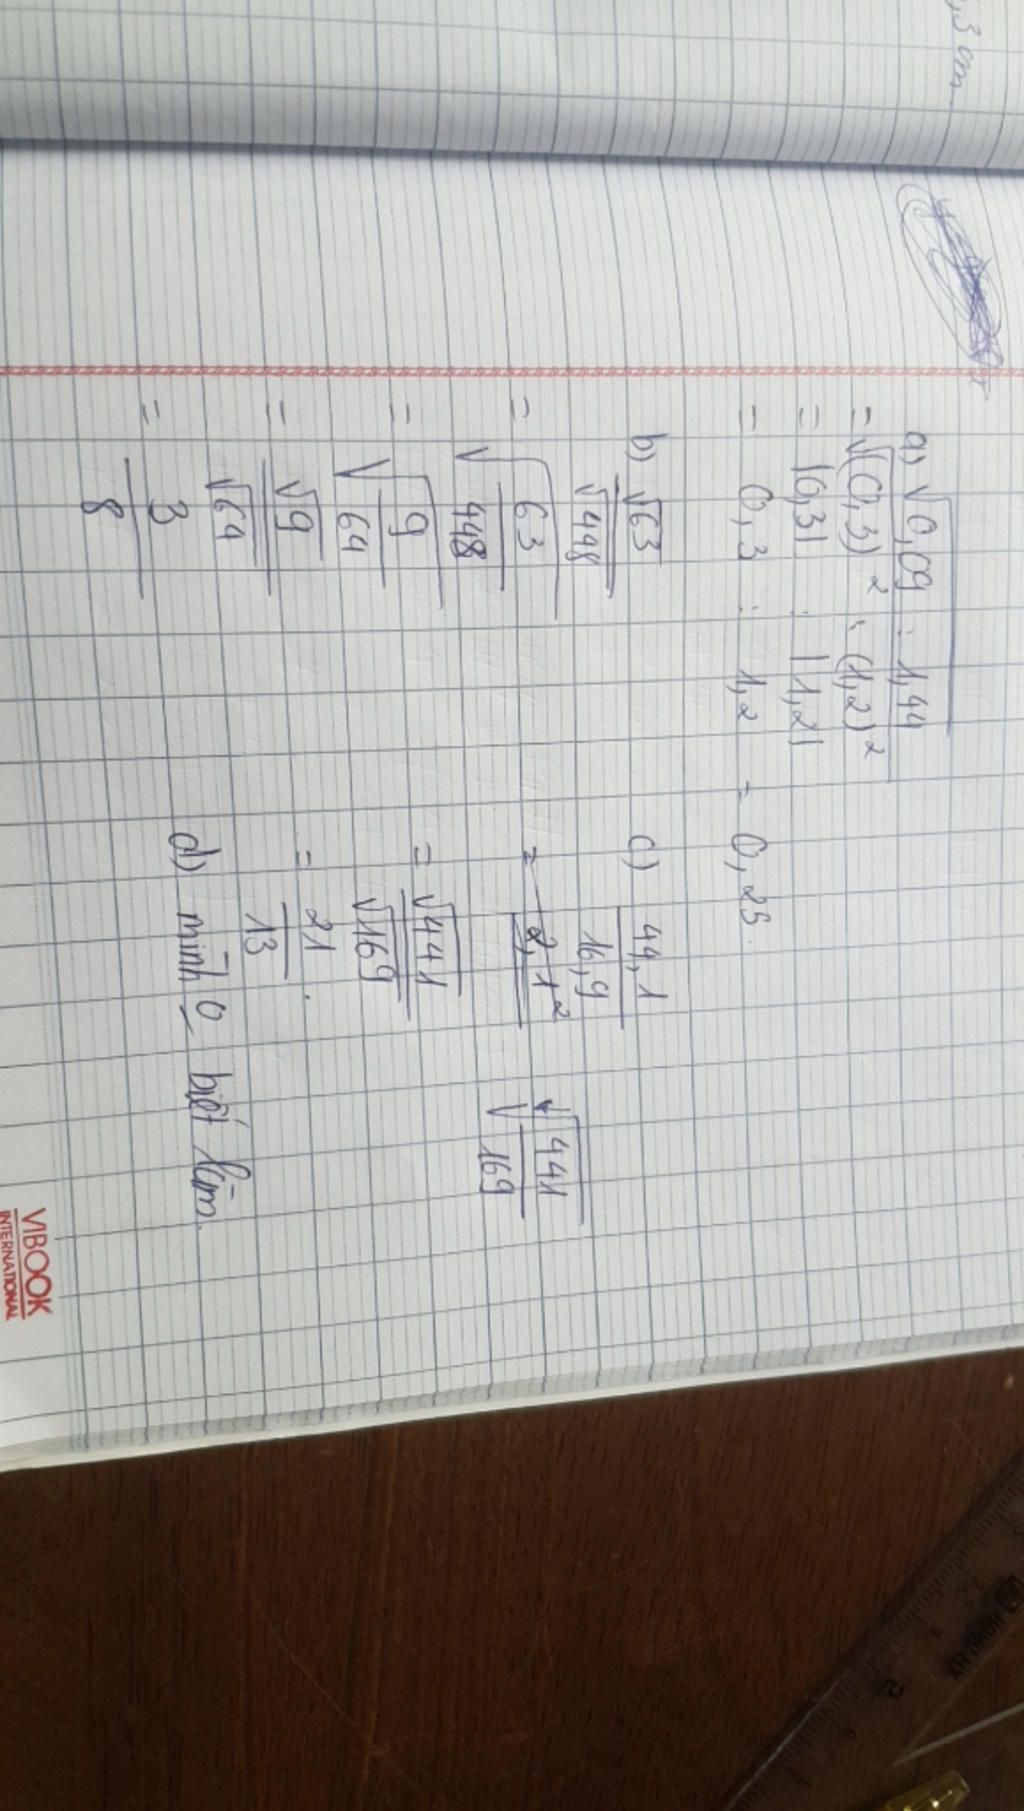 ,3 cm
a) √0,09 : 1,44
= √(0,3)² : (1,2)²
= |0,3| : |1,2|
= 0,3 : 1,2 = 0,25.
b) √63
√448
= √63
448
= √9
64
= √9
√64
= 3
8
c) 44,1
16,9
= 2,1²
√441
169
= √441
√169
= 21
13
d) mình o biết làm.
VIBOOK
INTERNATIONAL